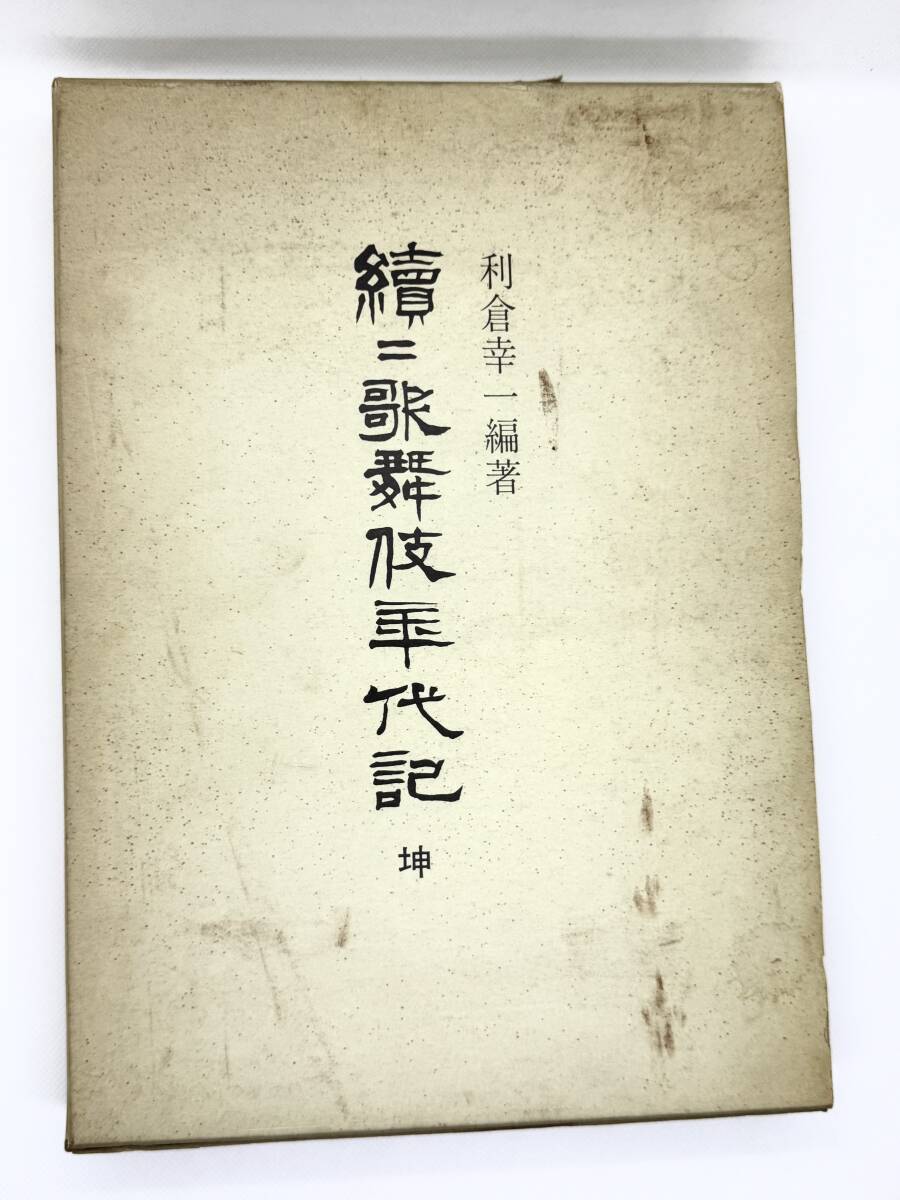 利倉幸一編著
續二歌舞伎年代記
坤